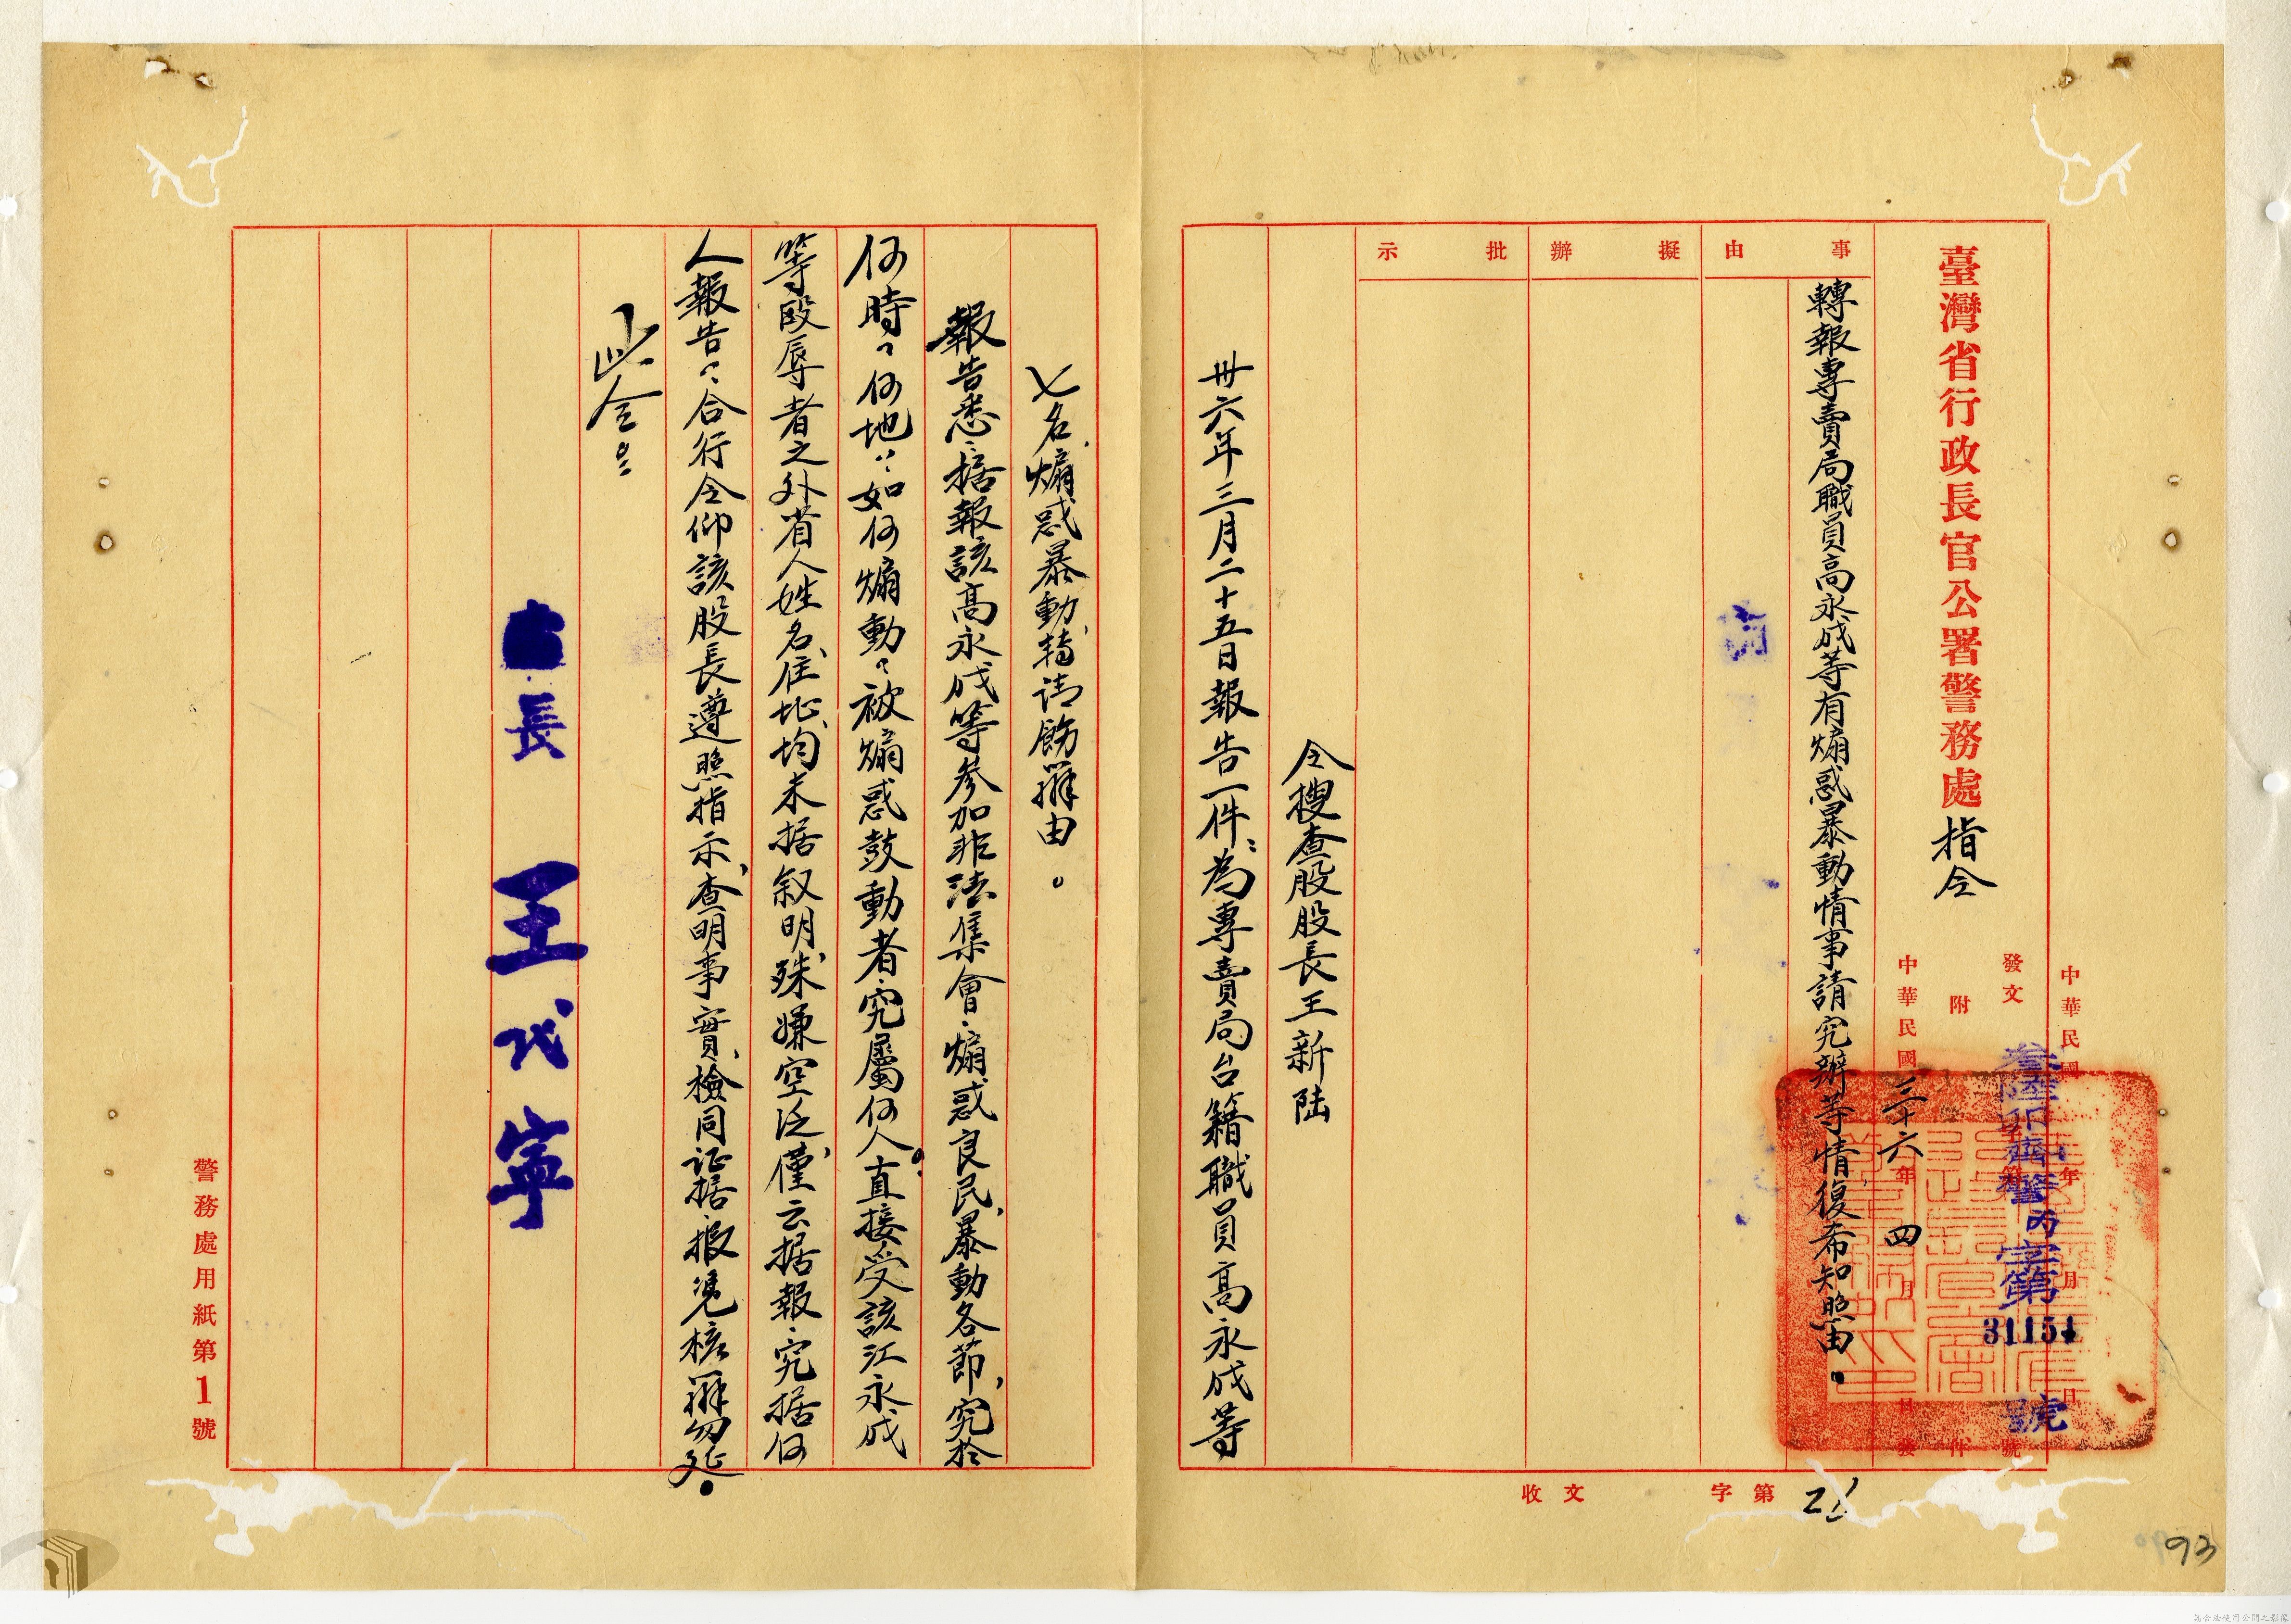 臺灣省行政長官公署警務處 指令
中華民國 年 月 日
發文 叁陸卯 警丙字第31154號
附 件
中華民國三十六年四月 日發
事由
轉報專賣局職員高永成等有煽惑暴動情事請究辦等情復希知照由。
擬辦
批示
令搜查股股長王新陆
卅六年三月二十五日報告一件:為專賣局台籍職員高永成等
收文 字第
21
93
七名,煽惑暴動,轉请飭辦由。
報告悉、据報該高永成等參加非法集會、煽惑良民,暴動各節,究於
何時、何地、如何煽動、被煽惑鼓動者,究屬何人、直接受該江永成
等毆辱者之外省人姓名、住址、均未据叙明,殊嫌空泛,僅云据報、究据何
人報告、合行令仰該股長遵照指示,查明事實,檢同证据、报凴核辦勿延。
此令。
長 王民寧
警務處用紙第1號
請合法使用公開之影像